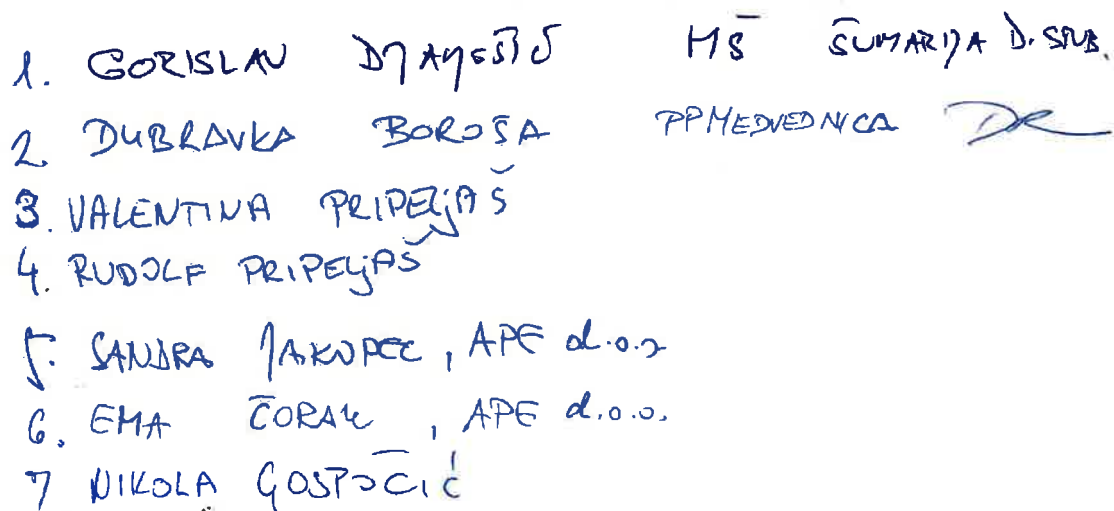 1. GORISLAV HŠ ŠUMARIJA D. STUB.
2. DUBRAVKA BOROŠA PPMEDVEDNICA
3. VALENTINA PRIPELJAŠ
4. RUDOLF PRIPELJAŠ
5. SANDRA JAKOPEC, APE d.o.o
6. EMA ČORAK, APE d.o.o.
7 NIKOLA GOSPOČIĆ